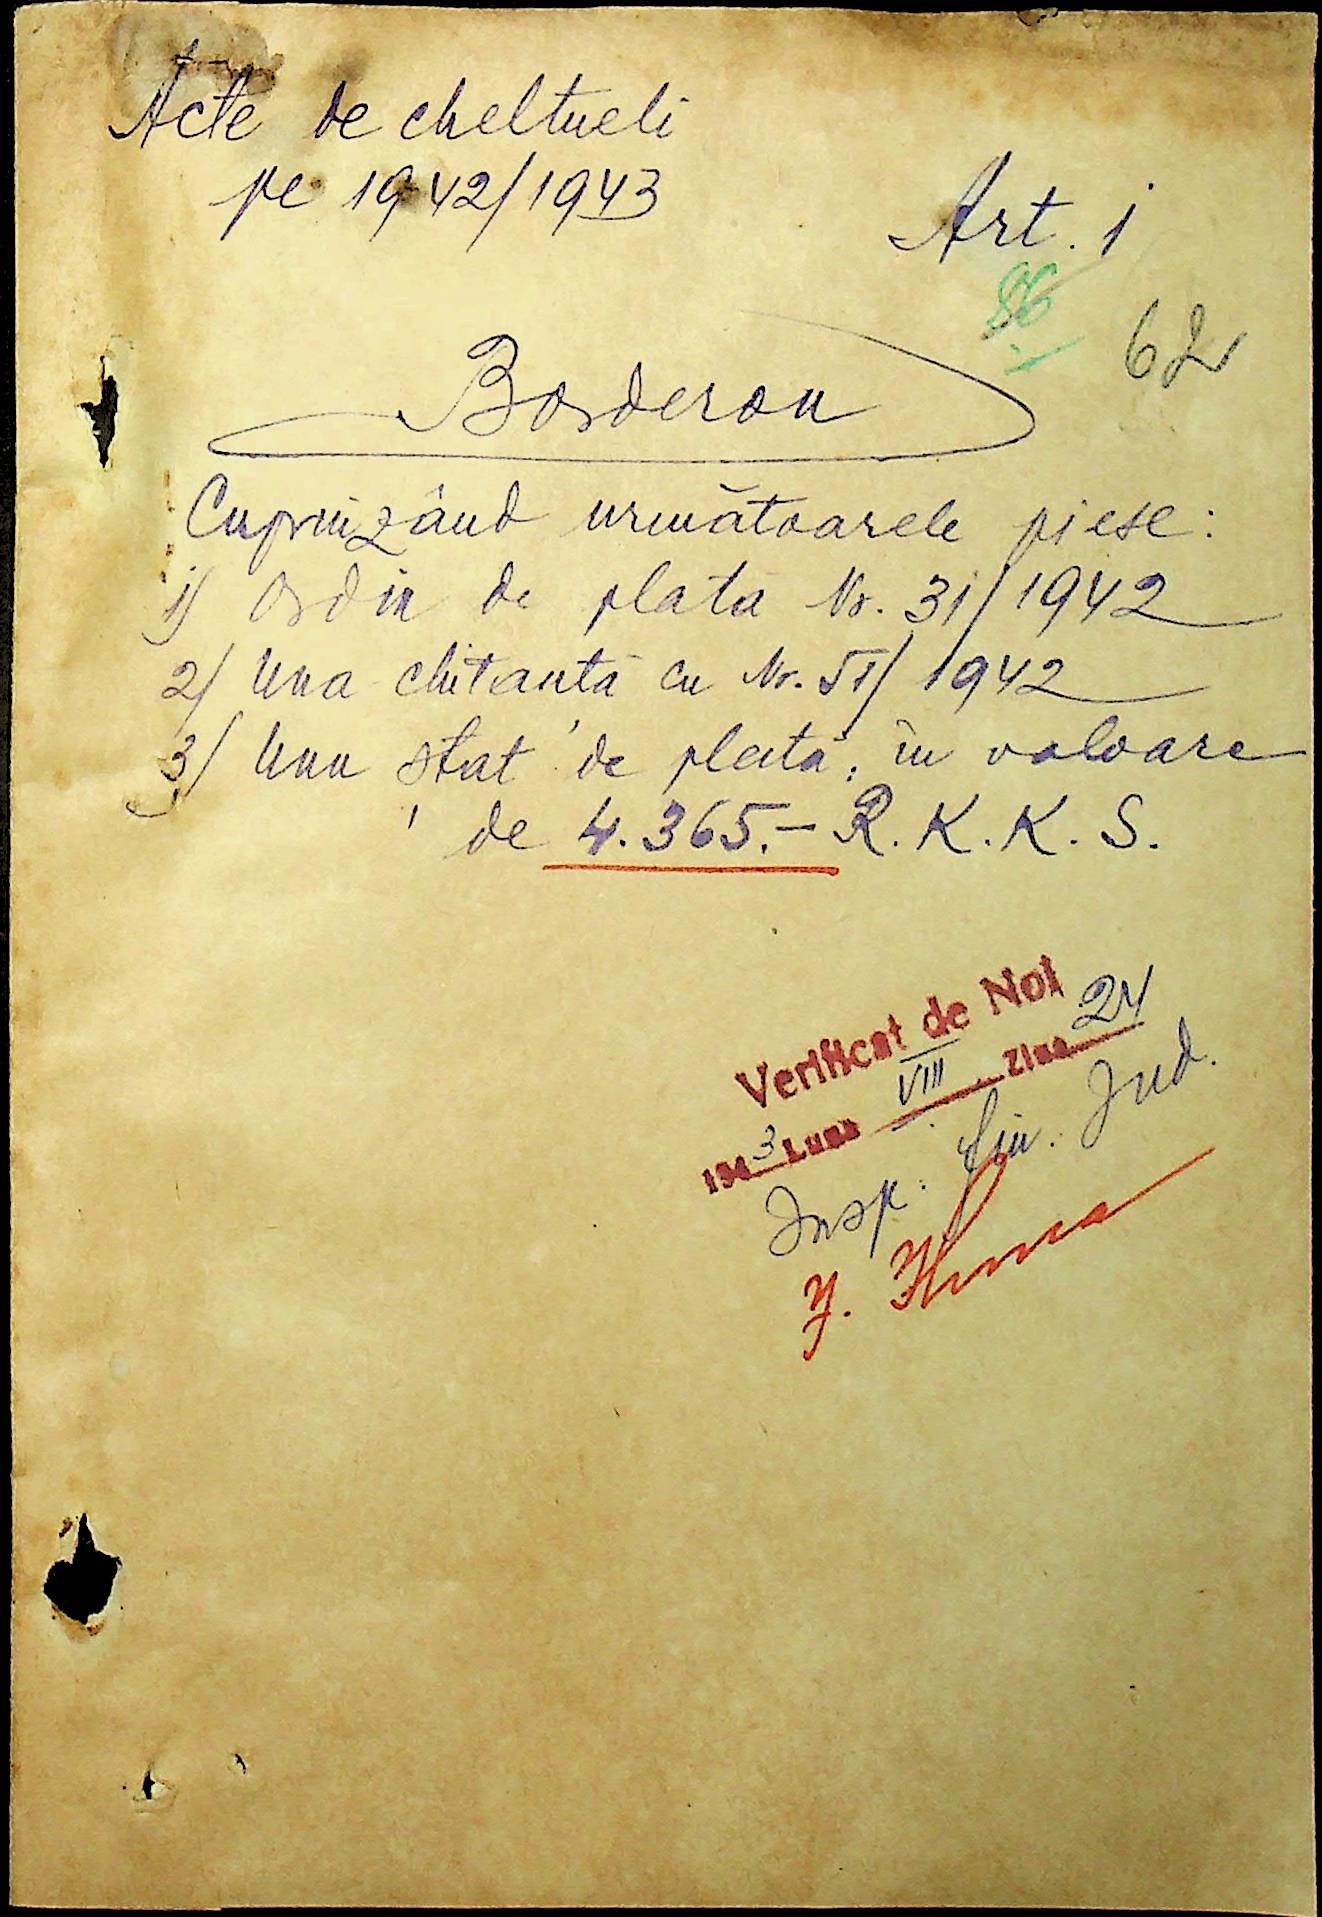 Acte de cheltueli
pe 1942/1943
Art. 1
86
62
Borderou
Cuprinzând următoarele piese:
1) Ordin de plată Nr. 31/1942
2/ Una chitantă cu Nr. 51/1942
3/ Unu ștat de plată, în valoare
de 4.365.- R.K.K.S.
Verificat de Noi
1943 Luna VIII Ziua 24
Insp. fin. Jud.